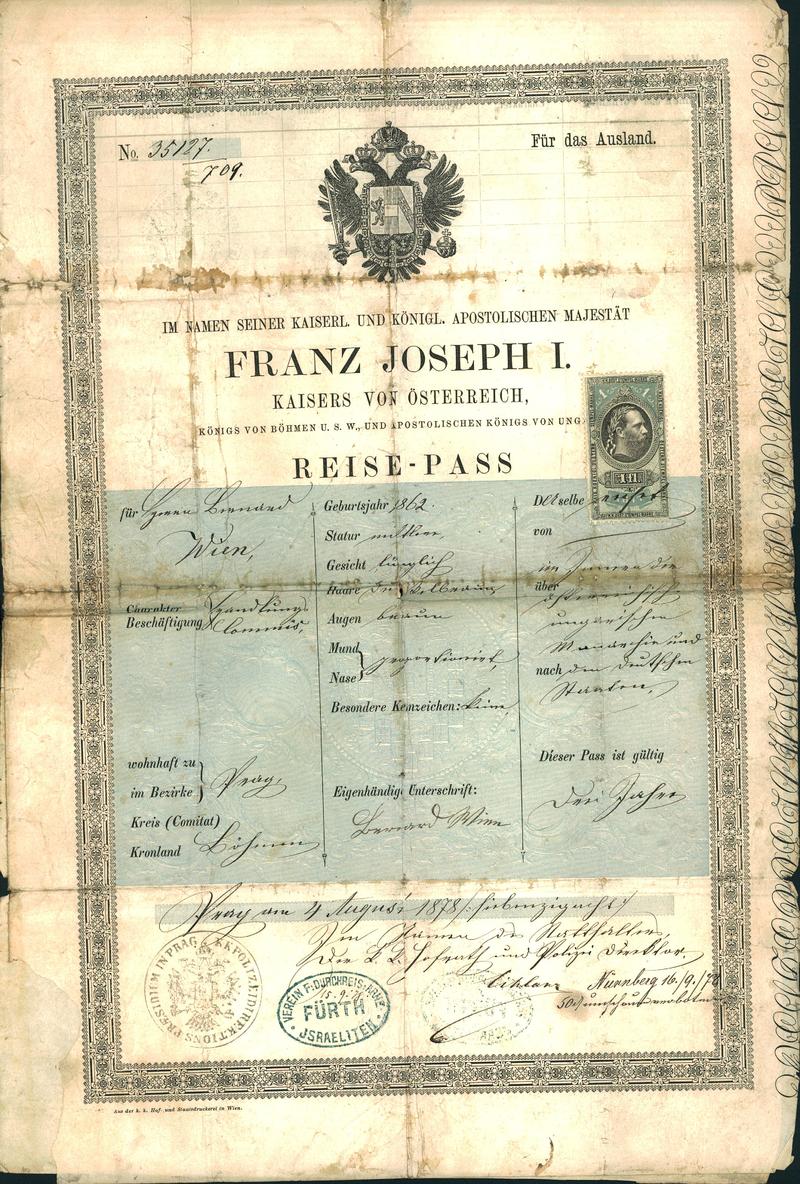 No. 35127.
709.
Für das Ausland.
IM NAMEN SEINER KAISERL. UND KÖNIGL. APOSTOLISCHEN MAJESTÄT
FRANZ JOSEPH I.
KAISERS VON ÖSTERREICH,
KÖNIGS VON BÖHMEN U. S. W., UND APOSTOLISCHEN KÖNIGS VON UNG
REISE-PASS
für Herrn Bernard
Wien,
Charakter
Beschäftigung
Handlungs
Commis,
wohnhaft zu
im Bezirke
Prag,
Kreis (Comitat)
Kronland Böhmen
Geburtsjahr 1862.
Statur mittlere,
Gesicht länglich
Haare dunkelbraun
Augen braun
Mund
Nase
proportionirt,
Besondere Kennzeichen: keine,
Eigenhändige Unterschrift:
Bernard Wien
Derselbe reiset
von
im Innern der
über österreichisch
ungarischen
Monarchie und
nach den deutschen
Staaten,
Dieser Pass ist gültig
Drei Jahre
1 1
1 fl.
Prag am 4 August 1878 /:siebenzigacht:/
Im Namen des Statthalters,
Der k. k. Hofrath und Polizei Direktor.
Nürnberg 16./9./78
K.K. POLIZEIDIREKTIONS PRÆSIDIUM IN PRAG
VEREIN F. DURCHREIS. ARME
15. 9.
FÜRTH
JSRAELITEN
Aus der k. k. Hof- und Staatsdruckerei in Wien.